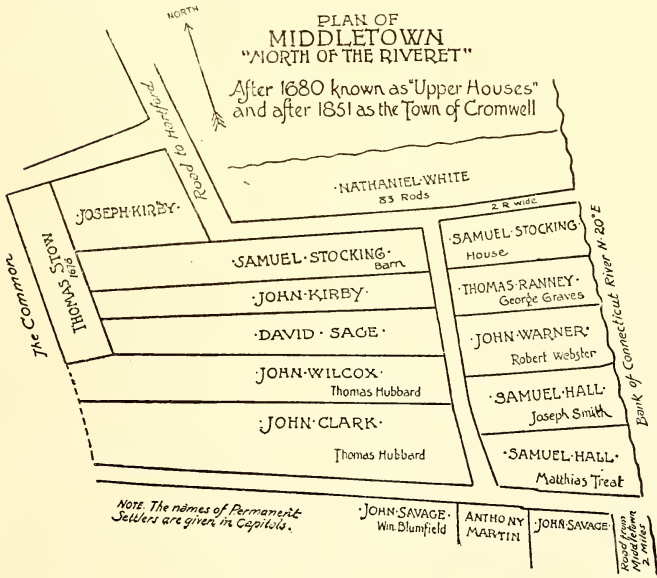 NORTH
PLAN OF
MIDDLETOWN
"NORTH OF THE RIVERET"
After 1680 known as "Upper Houses"
and after 1851 as the Town of Cromwell
Road to Hartford
·NATHANIEL·WHITE
83 Rods
2 R wide
JOSEPH·KIRBY·
The Common
THOMAS STOW
1678
·SAMUEL·STOCKING·
Barn
·JOHN·KIRBY·
·DAVID·SAGE·
·JOHN·WILCOX·
Thomas Hubbard
·JOHN·CLARK·
Thomas Hubbard
·SAMUEL·STOCKING·
House
·THOMAS·RANNEY·
George Graves
·JOHN·WARNER·
Robert Webster
·SAMUEL·HALL·
Joseph Smith
·SAMUEL·HALL·
Matthias Treat
Bank of Connecticut River N·20°E
NOTE. The names of Permanent
Settlers are given in Capitols.
·JOHN·SAVAGE·
Wm. Blumfield
ANTHONY
MARTIN
·JOHN·SAVAGE·
Road from
Middletown
2 Miles